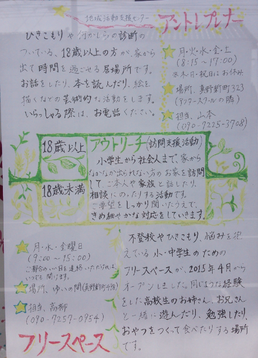 地域活動支援センター
アントレプレナー
ひきこもりや何かしらの診断の
ついている、18歳以上の方が家から
出て時間を過ごせる居場所です。
お話をしたり、本を読んだり、絵を
描くなどの芸術的な活動をします。
いらっしゃる際は、お電話ください。
月・火・水・金・土
(8:15~17:00)
担当、山本
18歳以上
18歳未満
アウトリーチ(訪問支援活動)
小学生から社会人まで、家から
なかなか出られない方のお家を訪問
して、ご本人や家族と話したり、
相談にのったりする活動です。
きめ細やかな対応をしていきます。
月・水・金曜日
(9:00~15:00)
フリースペース
不登校やひきこもり、悩みを抱
えている小・中学生のための
フリースペースが、2015年4月から
オープンしました。同じような経験
をした高校生のお姉さん、お兄さん
と一緒に遊んだり、勉強したり、
おやつをつくって食べたりする場所
です。